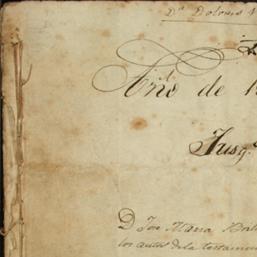 Dª Dolores
Año de 1
Jusg.
D José Maria
los autos de la testamen